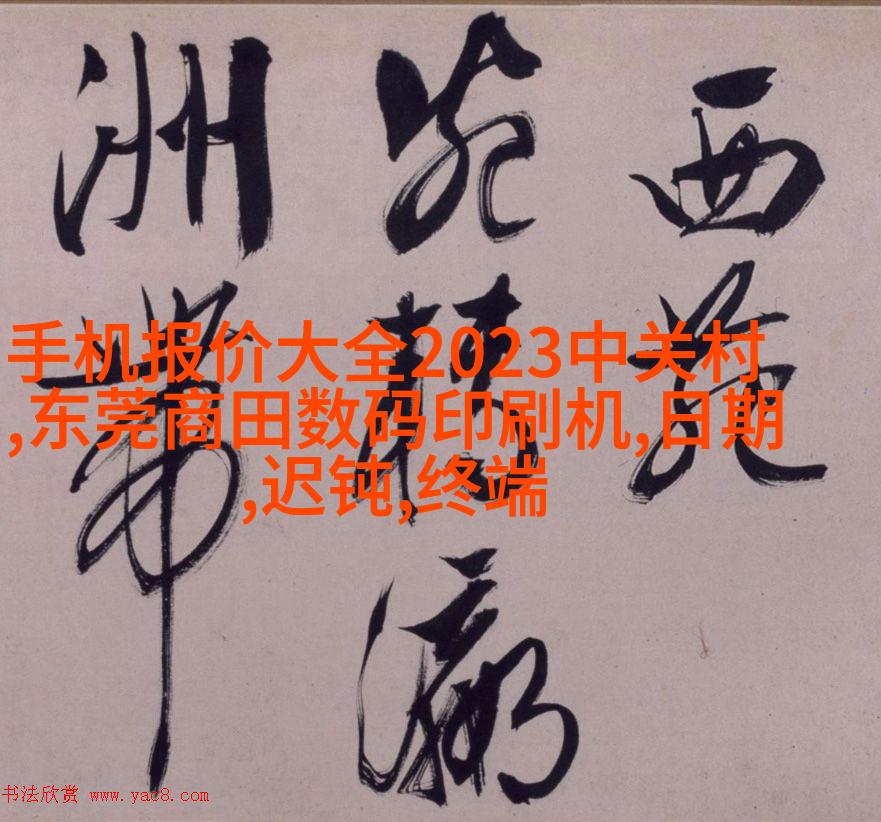 手机报价大全2023中关村
,东莞商田数码印刷机,日期
,迟钝,终端
西苑
瀛
洲
带
书法欣赏 www.yac8.com